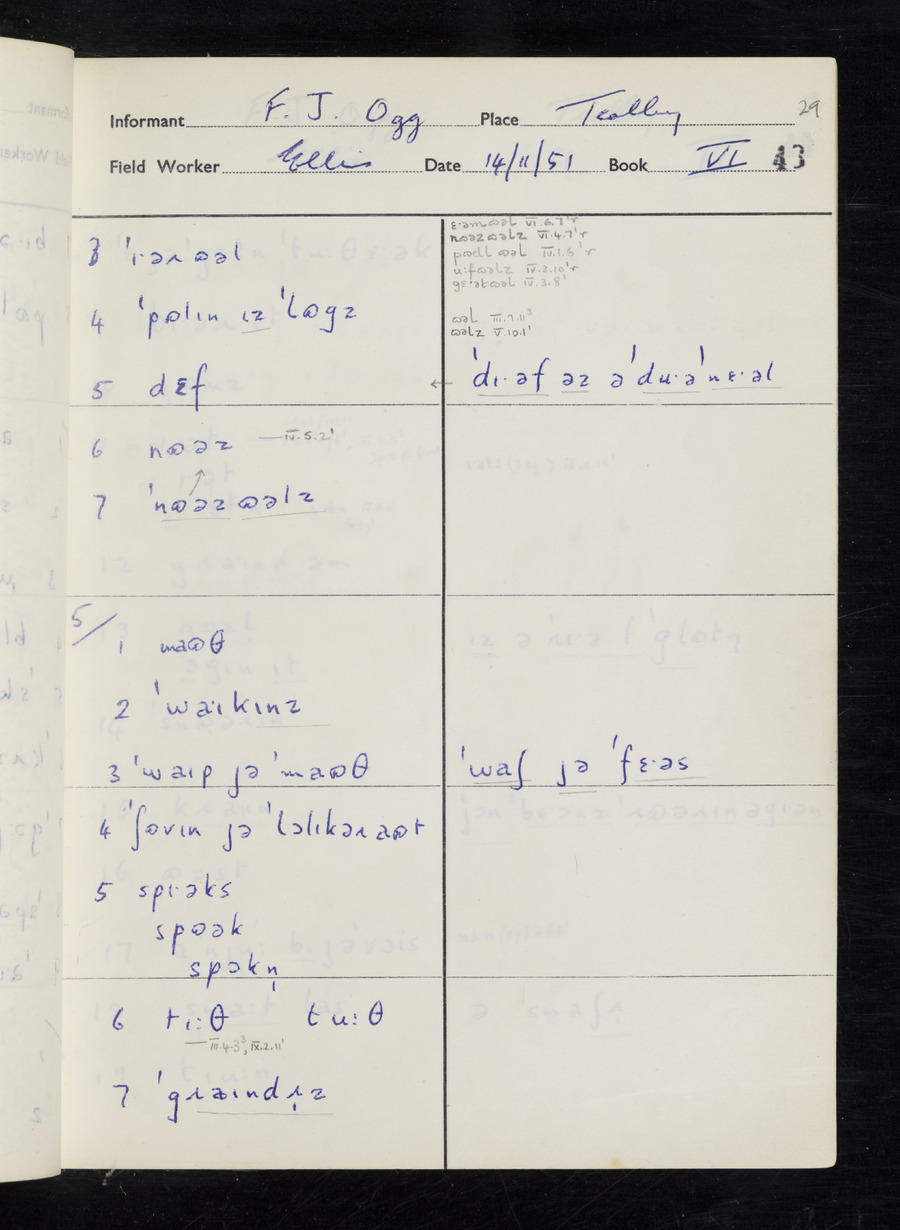 Informant F. J. Ogg Place Tealby 29
Field Worker Ellis Date 14/11/51 Book VI 43
3 ˈɪ·əɹɷəl
4 ˈpɷlɪn ɪz ˈlɷgz
5 dɛf
6 nɷəz — IV.5.2'
7 ˈnɷəzɷəlz
5/
1 maɷθ
2 ˈwa:ɪkɪnz
3 ˈwaɪp jə ˈmaɷθ
4 ˈʃɷvɪn jə ˈlɔlɪkəɹaɷt
5 spɪ·əks
spɷək
spɔkn̩
6 tɪ:θ tu:θ
— III.4.3³, IX.2.11'
7 ˈgɹaɪndɹ̩z
ɛ·əmɷəl VI.6.7'r
nɷəzɷəlz VI.4.7'r
pɷdlɷəl IV.1.6'r
u:fɷəlz IV.2.10'r
gɛ·ətɷəl IV.3.8'
ɷəl III.7.11³
ɷəlz V.10.1'
← ˈdɪ·əf əz əˈdu·əˈnɛ·əl
ˈwaʃ jə ˈfɛ·əs